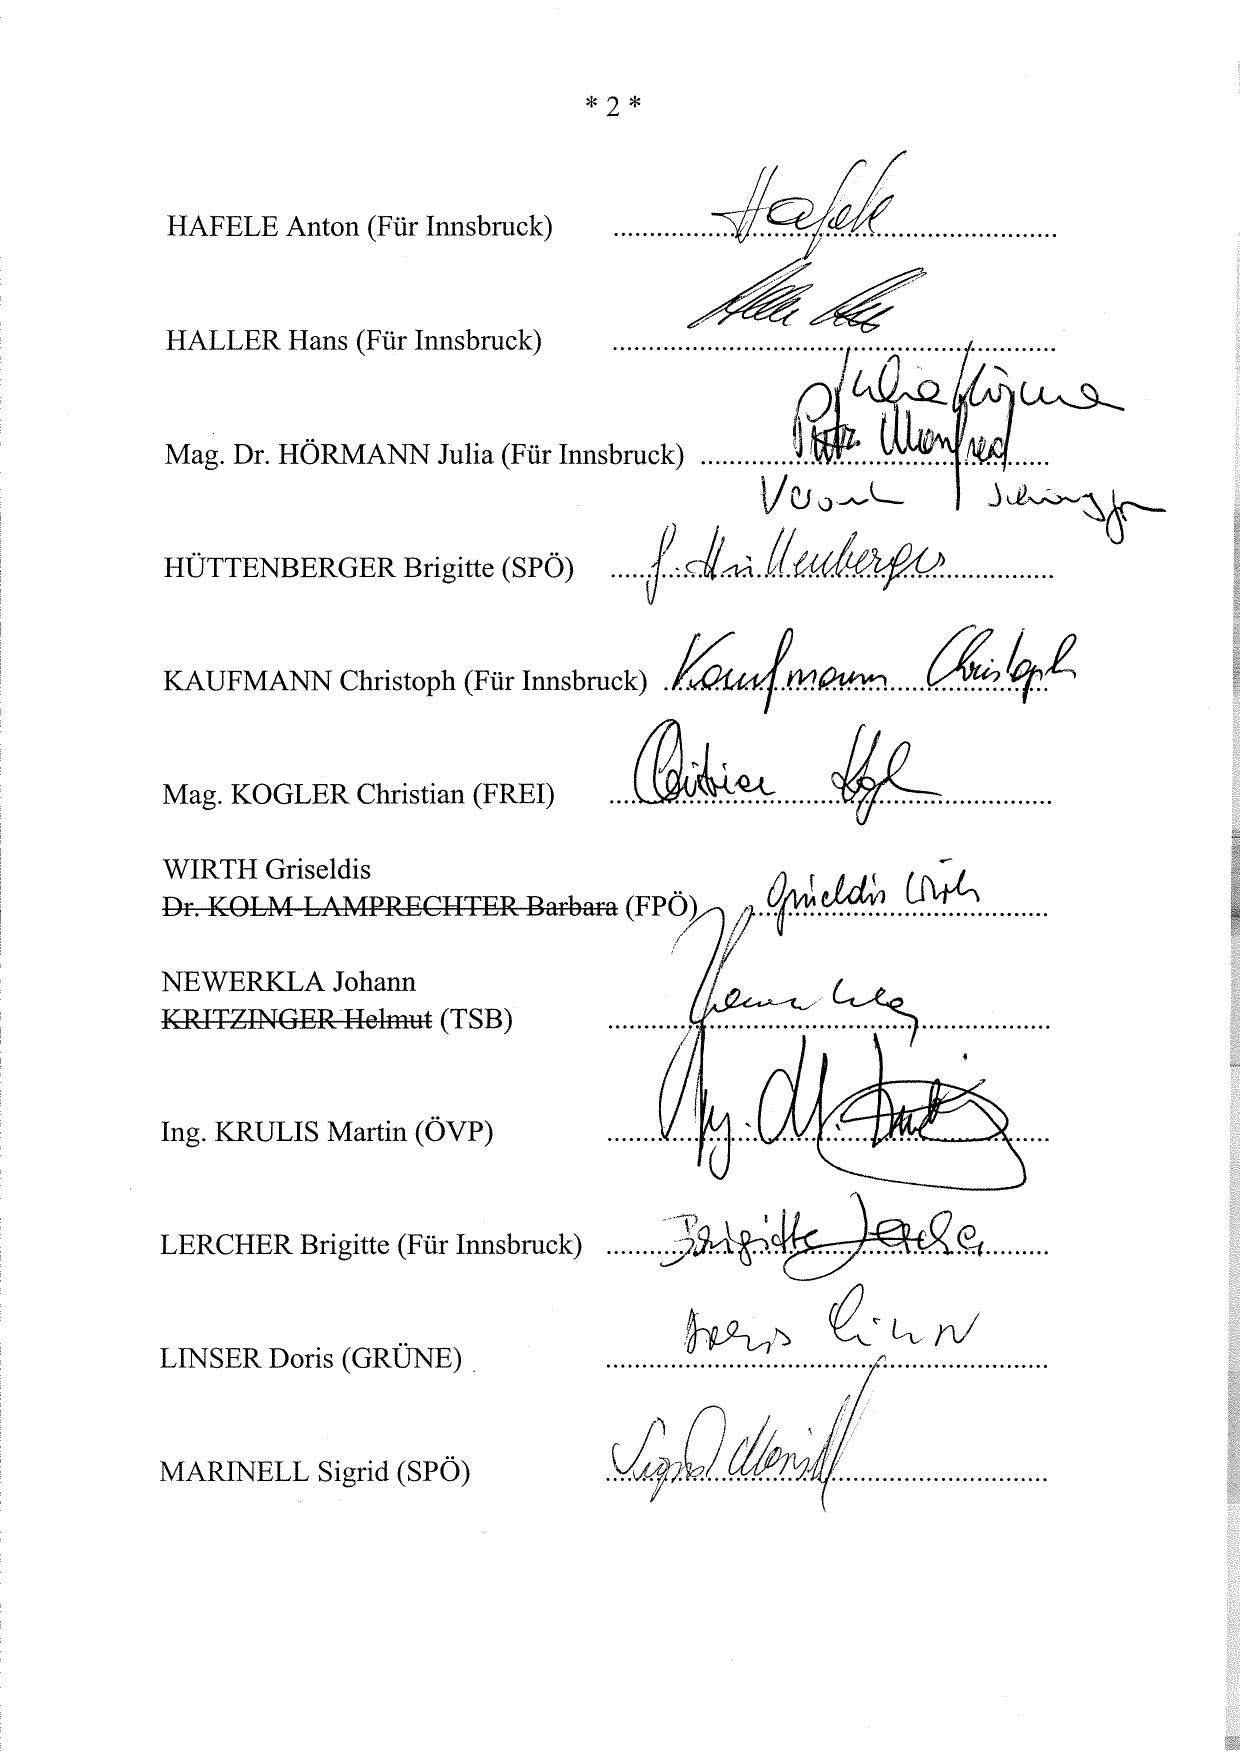 * 2 *
HAFELE Anton (Für Innsbruck) Hafele
HALLER Hans (Für Innsbruck)
Julia Hörmann
Mag. Dr. HÖRMANN Julia (Für Innsbruck) Manfred
HÜTTENBERGER Brigitte (SPÖ) Hüttenberger
KAUFMANN Christoph (Für Innsbruck) Kaufmann Christoph
Mag. KOGLER Christian (FREI)
WIRTH Griseldis
Dr. KOLM-LAMPRECHTER Barbara (FPÖ) Griseldis Wirth
NEWERKLA Johann
KRITZINGER Helmut (TSB)
Ing. KRULIS Martin (ÖVP) Ing. M.
LERCHER Brigitte (Für Innsbruck) Brigitte
Doris
LINSER Doris (GRÜNE)
MARINELL Sigrid (SPÖ) Sigrid Marinell